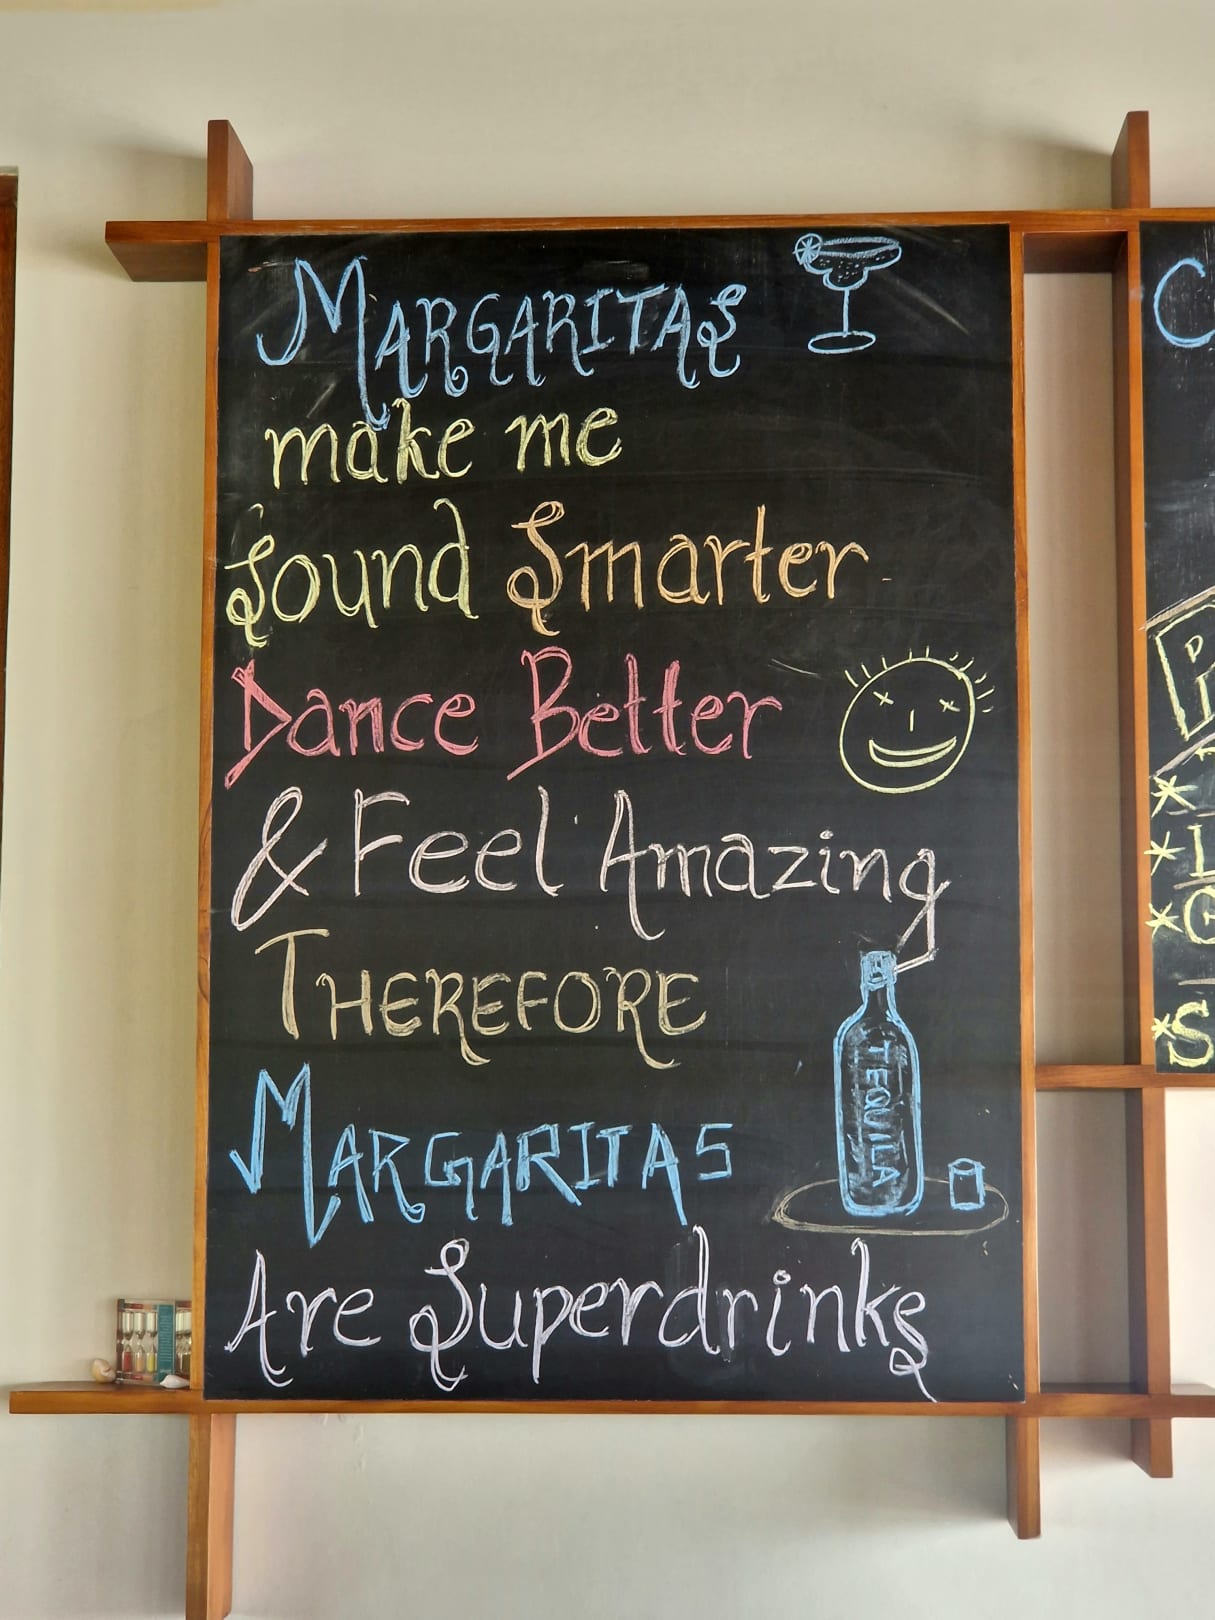 MARGARITAS
make me
Sound Smarter
Dance Better
& Feel Amazing
THEREFORE
MARGARITAS
Are Superdrinks
TEQUILA